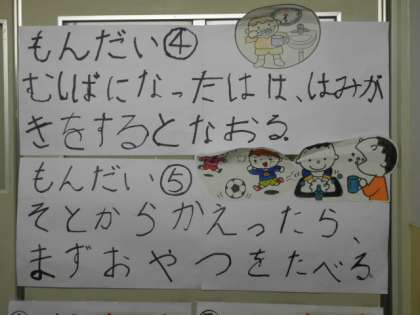 もんだい④
むしばになったはは、はみが
きをするとなおる
もんだい⑤
そとからかえったら、
まずおやつをたべる